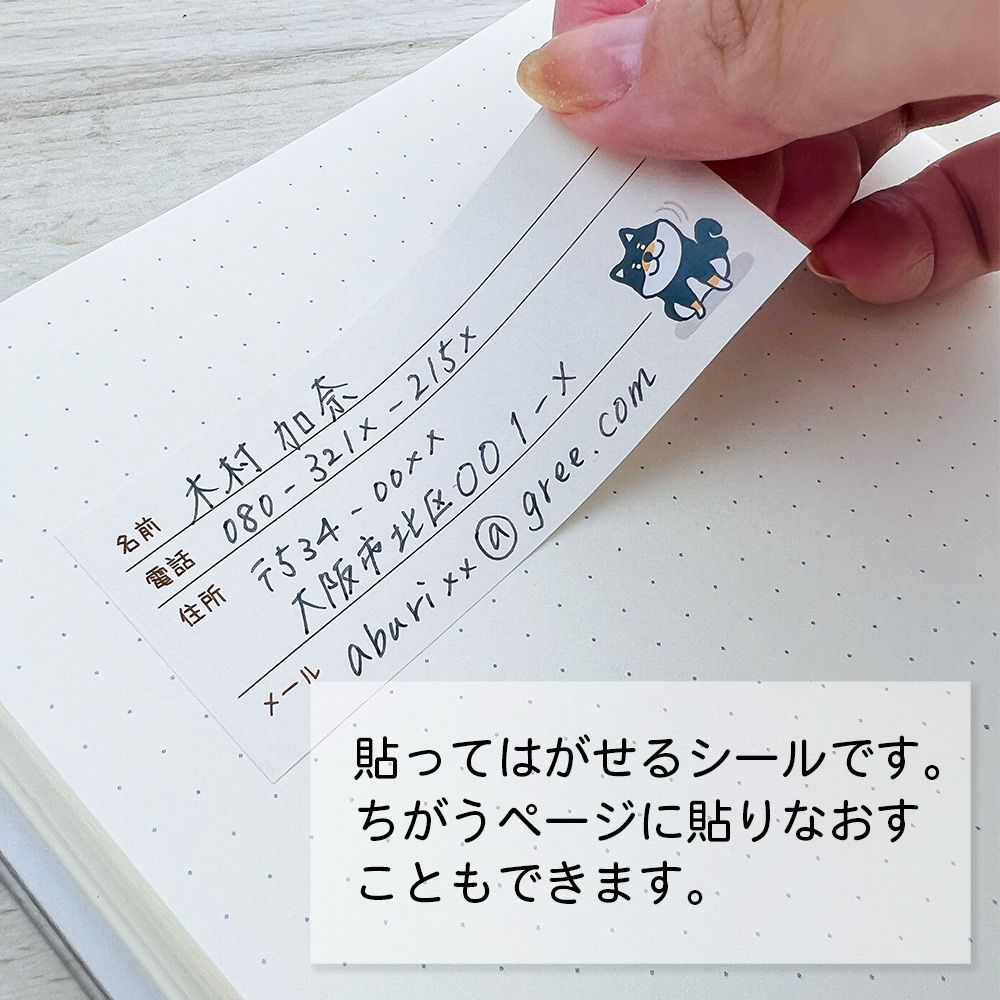 名前 木村 加奈
電話 080-321x-215x
住所 〒534-00xx
大阪市北区00 1-x
メール aburixx@gree.com
貼ってはがせるシールです。
ちがうページに貼りなおす
こともできます。